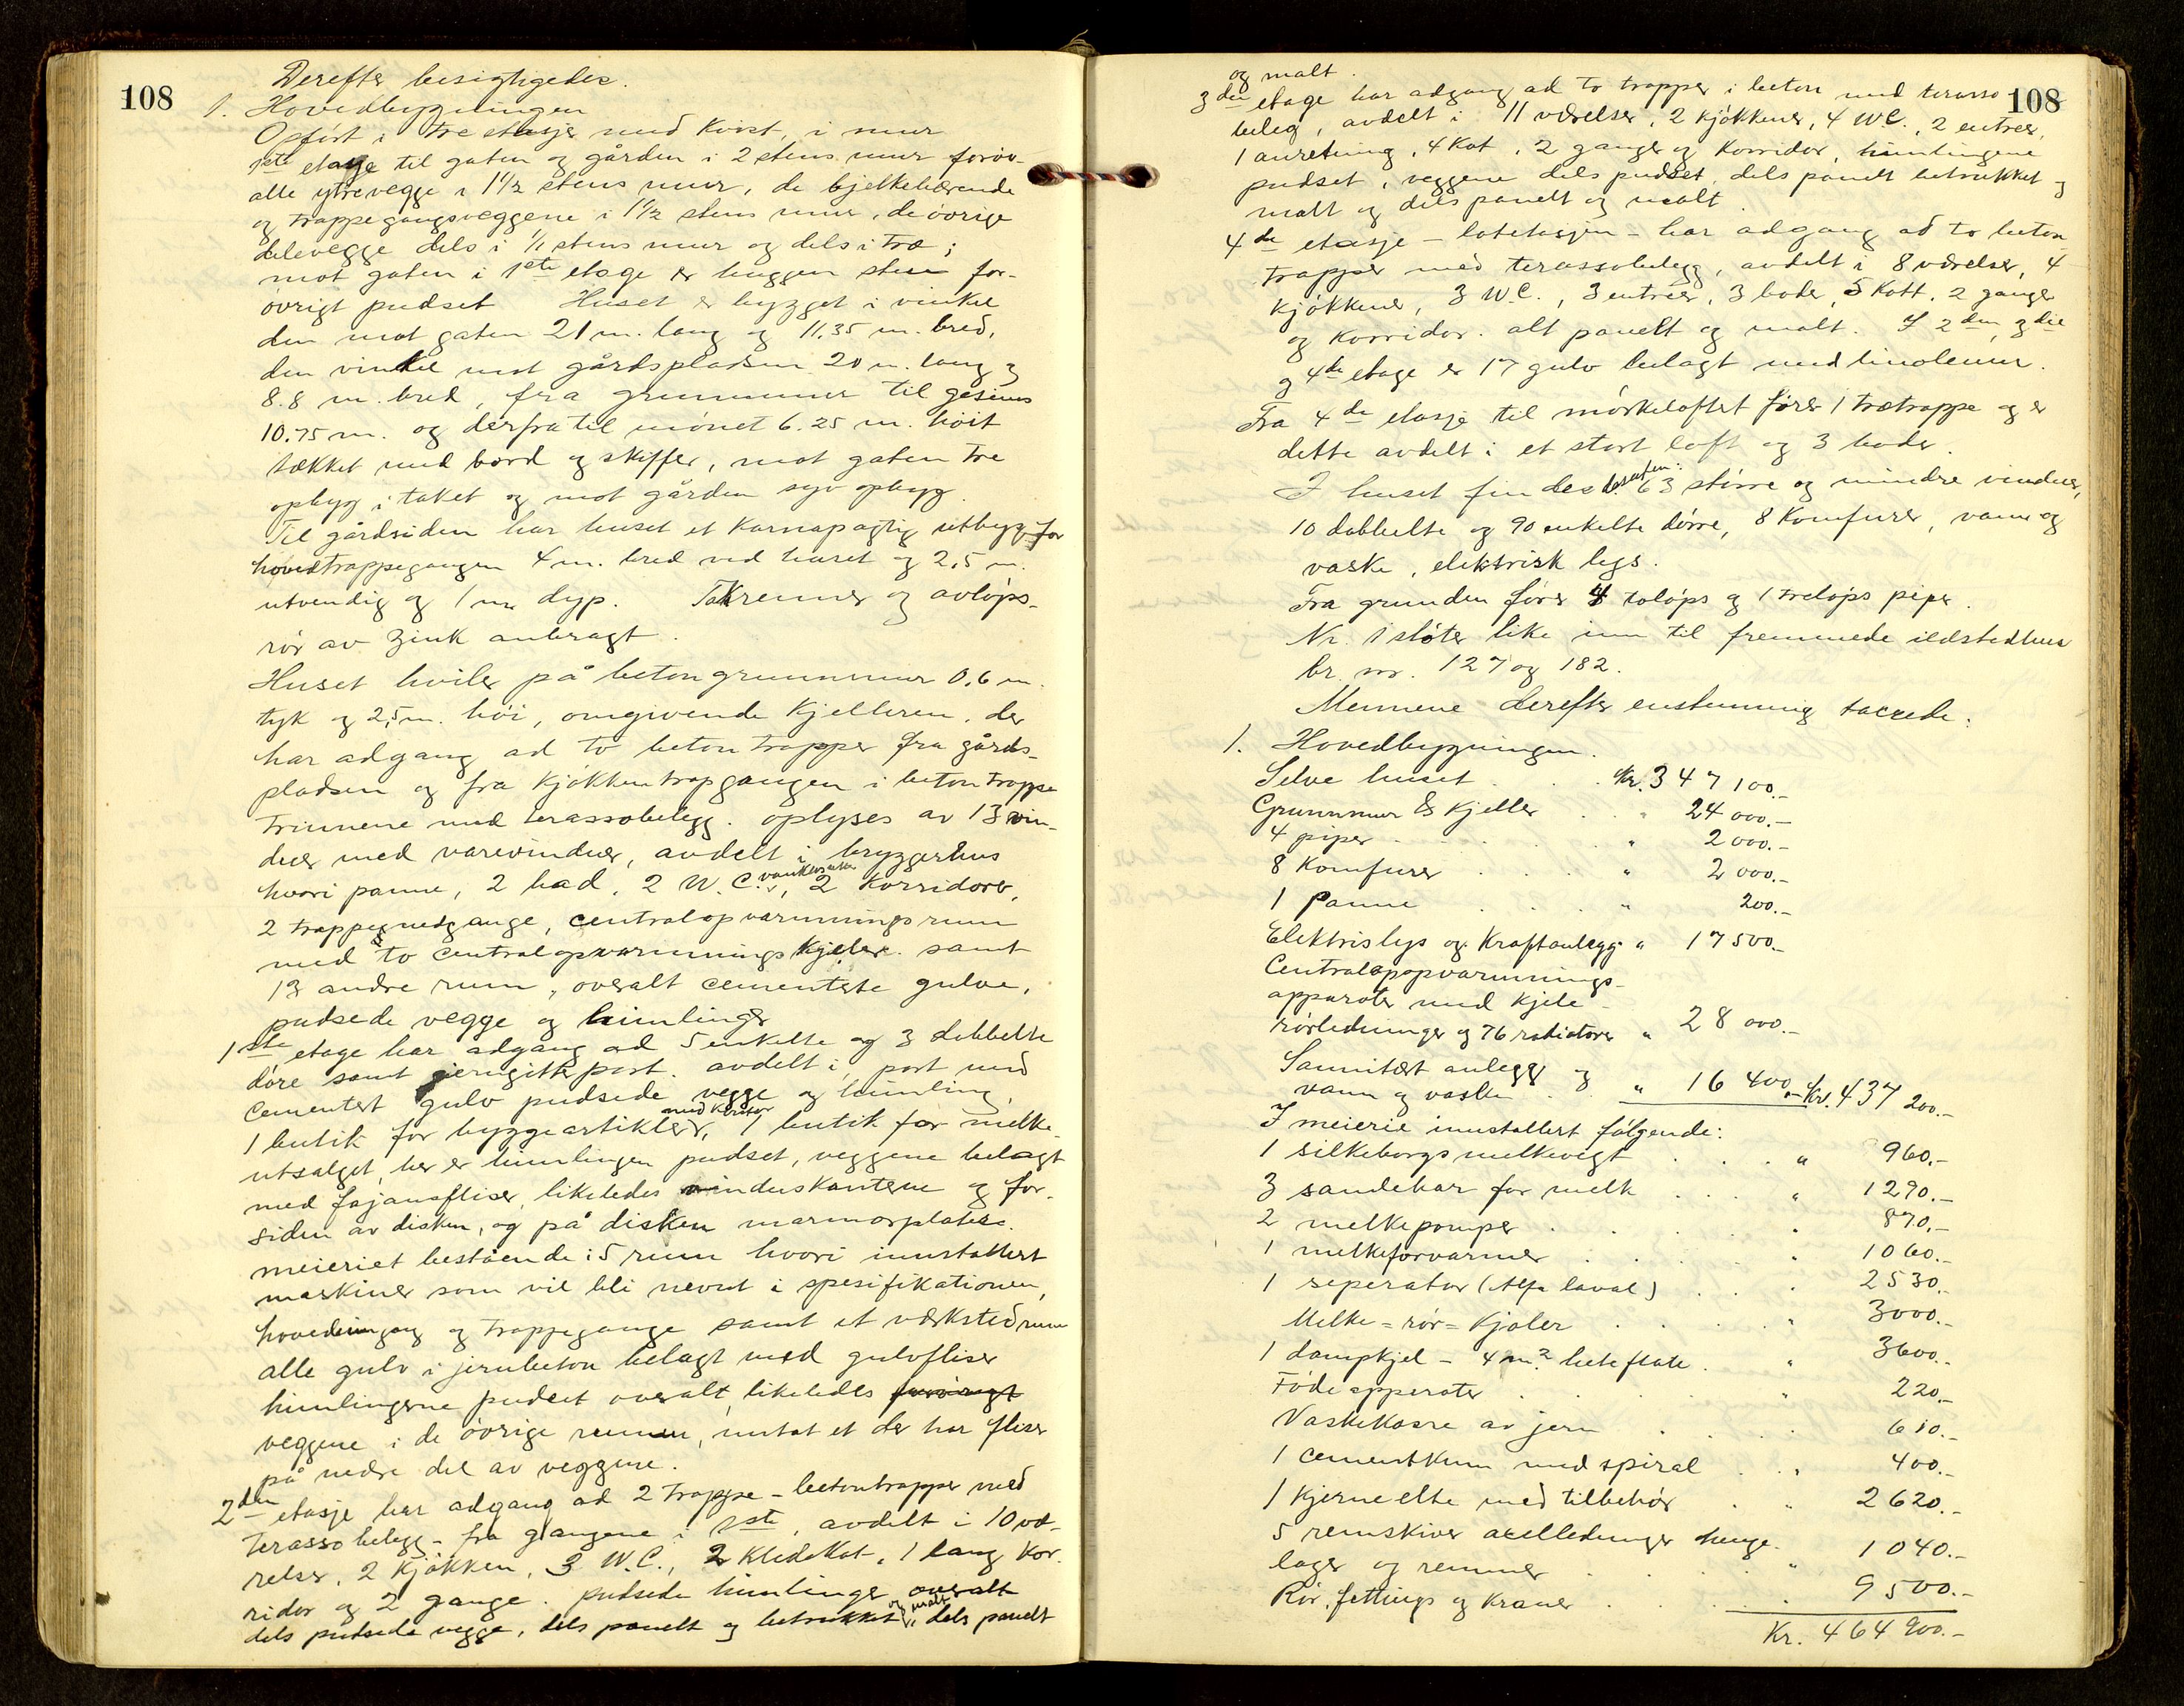 108
Derefter besigtigedes.
1. Hovedbygningen
Opført i tre etasjer med kvist, i mur
1ste etage til gaten og gården i 2 stens mur forøv-
alle ytrevegge i 1½ stens mur, de bjelkebærende
og trappegangsveggene i 1½ stens mur, de øvrige
delevegge dels i ½ stens mur og dels i træ;
mot gaten i 1ste etage er huggen sten for-
øvrigt pudset Huset er bygget i vinkel
den mot gaten 21 m. lang og 11,35 m. bred,
den vinkel mot gårdspladsen 20 m. lang og
8.8 m. bred, fra grunnmur til gesims
10.75 m. og derfra til mønet 6.25 m. høit
tækket med bord og skiffer, mot gaten tre
opbyg i taket og mot gården syv opbyg.
Til gårdsiden har huset et karnapagtig utbygg for
hovedtrappegangen 4 m. bred ved huset og 2,5 m.
utvendig og 1 m. dyp. Takrenner og avløps-
rør av zink anbragt.
Huset hviler på betongrunnmur 0,6 m.
tyk og 2,5 m. høi, omgivende kjelleren, der
har adgang ad to beton trapper fra gårds-
pladsen og fra kjøkkentrapgangen i beton trappe
trinnene med terassobelegg. oplyses av 13 vin-
duer med varevinduer, avdelt i bryggerhus
hvori panne, 2 bad, 2 W.C., 2 korridorer,
2 trappegnedgange, centralopvarmningsrum
med to centralopvarmnings kjeler. samt
13 andre rum, overalt cementerte gulve,
pudsede vegge og himlinger
1ste etage har adgang ad 5 enkelte og 3 dobbelte
døre samt jerngitterport. avdelt i, port med
cementert gulv pudsede vegge og himling,
1 butik for byggeartikler med kontor, 1 butik for melke-
utsalget, her er himlingen pudset, veggene belagt
med fajansefliser, likeledes vinduskantene og for-
siden av disken, og på disken marmorplater.
meieriet bestående i 5 rum hvori innstallert
maskiner som vil bli nevnt i spesifikationen,
hovedinngang og trappegange samt et verksted rum
alle gulv i jernbeton belagt med gulvfliser
himlingerne pudset overalt, likeledes forøvrigt
veggene i de øvrige rummen, inntat et der har fliser
på nedre del av veggene.
2den etasje har adgang ad 2 trappe - betontrapper med
terasso belegg - fra gangene i 1ste, avdelt i 10 væ-
relser, 2 kjøkken, 3 W.C., 2 kledekot, 1 lang kor-
ridor og 2 gange. pudsede himlinger overalt
dels pudsede vegge, dels panelt og betrukket og malt, dels panelt
108
og malt.
3die etage har adgang ad to trapper i beton med terasso
beleg, avdelt i 11 værelser, 2 kjøkkener, 4 W.C., 2 entreer,
1 anretning, 4 Kot, 2 ganger og korridor, himlingene
pudset, veggene dels pudset, dels panelt betrukket og
malt og dels panelt og malt.
4de etasje - lofetasjen - har adgang ad to beton
trapper med terassobelegg, avdelt i 8 værelser, 4
kjøkkener, 3 W.C., 3 entreer, 3 boder, 5 Kott, 2 ganger
og korridor. alt panelt og malt. I 2den, 3die
og 4de etage er 17 gulv belagt med linoleum.
Fra 4de etasje til mørkeloftet fører 1 trætrappe og er
dette avdelt i et stort loft og 3 boder.
I huset findes 63 større og mindre vinduer,
10 dobbelte og 90 enkelte dørre, 8 komfurer, vann og
vaske, elektrisk lys.
Fra grunden fører 4 toløps og 1 treløps piper.
Nr. 1 støter like inn til fremmede ildstedhus
br. nr. 127 og 182.
Mennene derefter enstemmig taxerte:
1. Hovedbygningen.
Selve huset . . . Kr. 347 100.-
Grunnmur & Kjeller . . " 24 000.-
4 piper . . . . . " 2 000.-
8 komfurer . . . . " 2 000.-
1 Panne . . . . " 200.-
Elektrislys og Kraftanlegg " 17 500.-
Centralopopvarmnings-
apparater med kjele -
rørledninger og 76 radiatorer " 28 000.-
Sannitært anlegg og
vann og vasker . . " 16 400.- Kr. 437 200.-
I meierie innstallert følgende:
1 silkeborgs melkevegt . . . " 960.-
3 sandekar for melk . . . " 1290.-
2 melkepomper . . . . " 870.-
1 melkeforvarmer . . . . " 1060.-
1 seperator (Alfa laval) . . . 2530.-
Melke = rør = Kjøler . . . . " 3000.-
1 dampkjel - 4 m² heteflate . . " 3600.-
Føde apperater . . . . . " 220.-
Vaskekarre av jern . . . . 610.-
1 cementkum med spiral . . . 400.-
1 Kjerneelte med tilbehør . . " 2620.-
5 remskiver axelledninger henge-
lager og remmer . . . . " 1040.-
Rør, fettings og kraner . . . . 9500.-
Kr. 464 900.-